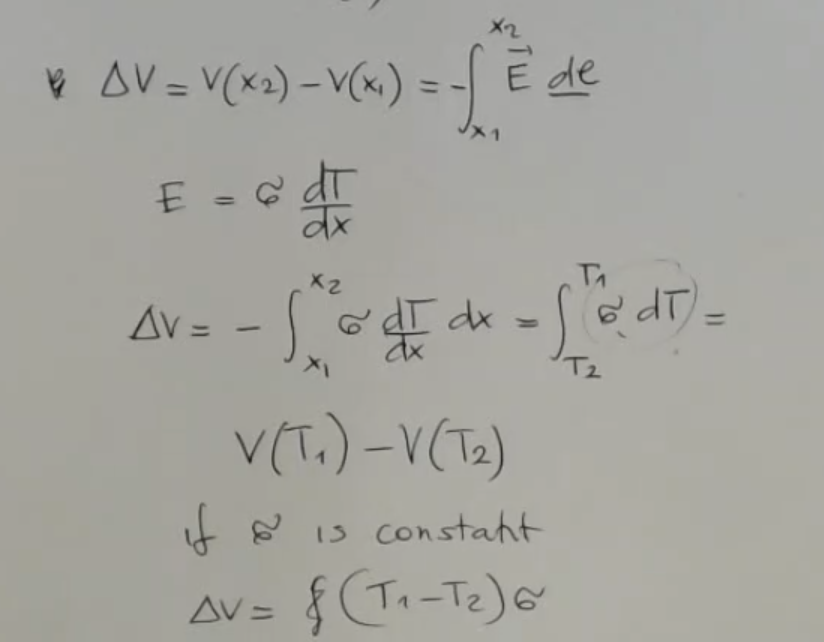 ΔV = V(x2) - V(x1) = -∫_{x1}^{x2} E⃗ de
E = σ dT/dx
ΔV = - ∫_{x1}^{x2} σ dT/dx dx = ∫_{T2}^{T1} σ dT =
V(T1) - V(T2)
if σ is constant
ΔV = (T1-T2)σ